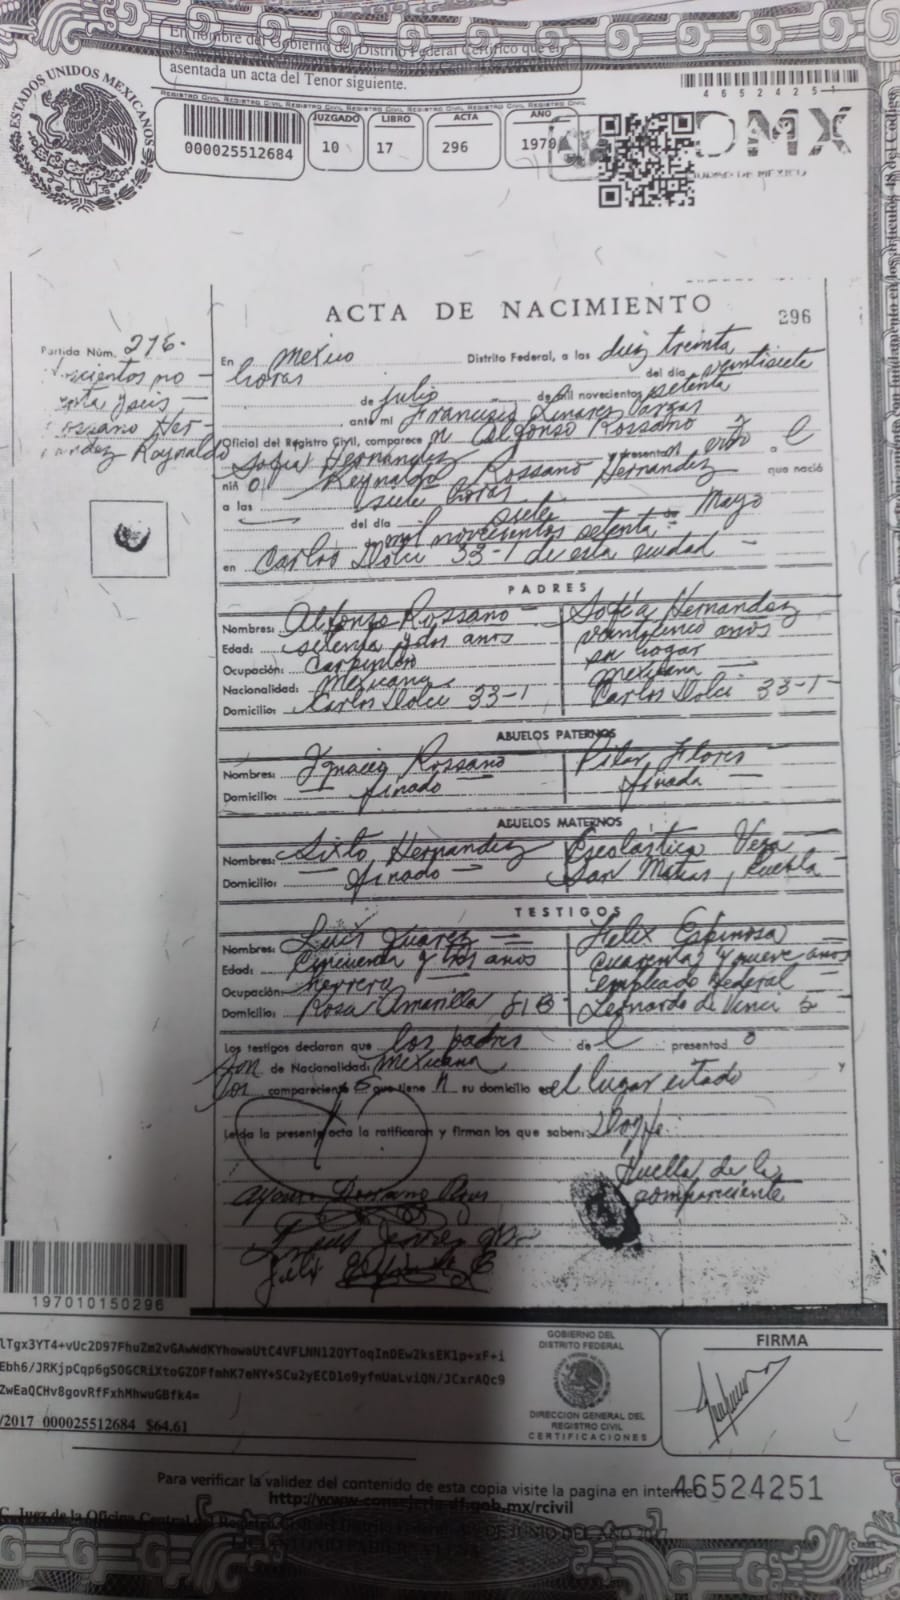 En nombre del Gobierno del Distrito Federal Certifico que e
asentada un acta del Tenor siguiente.
ESTADOS UNIDOS MEXICANOS
REGISTRO CIVIL REGISTRO CIVIL REGISTRO CIVIL REGISTRO CIVIL
000025512684
JUZGADO
10
LIBRO
17
ACTA
296
AÑO
1970
4 6 5 2 4 2 5 1
CDMX
CIUDAD DE MÉXICO
ACTA DE NACIMIENTO
296
Partida Núm. 296.
scientos no
enta y seis
ossano Her-
nandez Reynaldo
En Mexico Distrito Federal, a las diez treinta
horas del día veintisiete
de julio de mil novecientos setenta
ante mi Francisco Linares Vargas
Oficial del Registro Civil, comparecen Alfonso Rossano y
Sofia Hernandez y presentan vivo a el
niño Reynaldo Rossano Hernandez que nació
a las siete horas
del día siete de Mayo
mil novecientos setenta
en Carlos Dolci 33-1 de esta ciudad
PADRES
Nombres: Alfonso Rossano Sofía Hernandez
Edad: setenta y dos años veinticinco años
Ocupación: Carpintero su hogar
Nacionalidad: Mexicana Mexicana
Domicilio: Carlos Dolci 33-1 Carlos Dolci 33-1
ABUELOS PATERNOS
Nombres: Ignacio Rossano Pilar Flores
Domicilio: finado finada
ABUELOS MATERNOS
Nombres: Sixto Hernandez Escolástica Vera
Domicilio: finado San Matias, Puebla
TESTIGOS
Nombres: Luis Juarez Felix Espinosa
Edad: Cincuenta y tres años Cuarenta y nueve años
Ocupación: herrero empleado Federal
Domicilio: Rosa Amarilla 81B Leonardo de Vinci 5
Los testigos declaran que los padres del presentado
son de Nacionalidad: Mexicana y
los comparecientes que tienen su domicilio en el lugar citado
Leida la presente acta la ratificaron y firman los que saben: Doy fe.
Huella de la
compareciente
197010150296
lTgx3YT4+vUc2D97FhuZm2vGAwWdKYhowaUtC4VFLNN12OYToqInDEw2ksEK1p+xF+i
Ebh6/JRKjpCqp6gSOGCRiXtoGZOFfmhK7eNY+SCu2yECD1o9yfnUaLviQN/JCxrAQc9
ZwEaQCHv8govRfFxhMhwuGBfk4=
/2017 000025512684 $64.61
GOBIERNO DEL
DISTRITO FEDERAL
DIRECCION GENERAL DEL
REGISTRO CIVIL
CERTIFICACIONES
FIRMA
Para verificar la validez del contenido de esta copia visite la pagina en interne
46524251
http://www.consejeria.df.gob.mx/rcivil
C. Juez de la Oficina Central del Registro Civil del Distrito Federal DE JUNIO DEL AÑO 2017